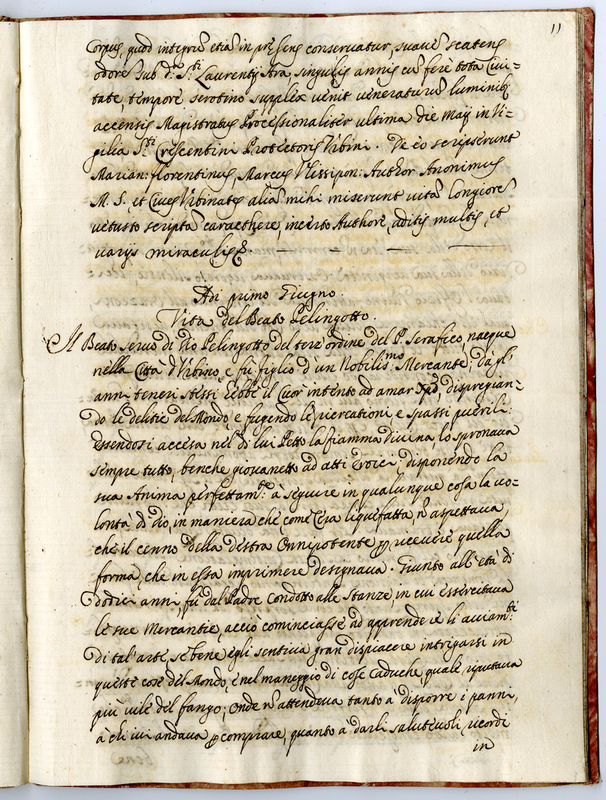 11
Corpus, quod integrũ etiã in prẹsens conservatur, suavẽ scatens
odorẽ sub dᵒ. Sᵗⁱ. Laurentij Ara, singulis annis cũ ferè tota Civi-
tate, tempore serotino supplex venit veneraturus luminibꝫ
accensis Magistratus Processionaliter ultima die maij in Vi-
gilia Sᵗⁱ. Crescentini Protectoris Urbini. De eo scripserunt
Marian: florentinus, Marcus Ulissipon: Author Anonimus
M. S. et Cives Urbinates alia mihi miserunt vitã longiorẽ
vetusto scripta caracthere, incerto Authore, aditis multis, et
varijs miraculis.
Adi primo Giugno.
Vita del Beato Pelingotto.
Il Beato servo di Dio Pelingotto del terz' ordine del P. Serafico nacque
nella Città d'Urbino, e fu figlio d'un Nobilisᵐᵒ Mercante; da gl'
anni teneri stessi ebbe il Cuor intento ad amar Xp̃o, dispregian-
do le delitie del Mondo, e fugendo le ricreationi e spassi puerili.
Essendosi accesa nel di lui Petto la fiamma divina lo spronava
sempre tutto, benche giovanetto ad atti Eroici; disponendo la
sua Anima perfettamᵗᵉ. à seguire in qualunque cosa la vo-
lontà di Dio, in maniera che come Cera liquefatta, nõ aspettava,
che il cenno della destra Onnipotente p ricevere quella
forma, che in essa imprimere designava. Giunto all'età di
dodici anni, fù dal Padre condotto alle Stanze, in cui essercitava
le sue Mercantie, acciò cominciasse ad apprendere li acciamᵗⁱ
di tal'arte, se bene egli sentiva gran dispiacere intrigarsi in
queste cose del Mondo, e nel maneggio di cose Caduche, quale riputava
più vile del fango; onde nõ attendeva tanto à disporre i panni,
à chi ivi andava p comprare, quanto à darli salutevoli ricordi
in